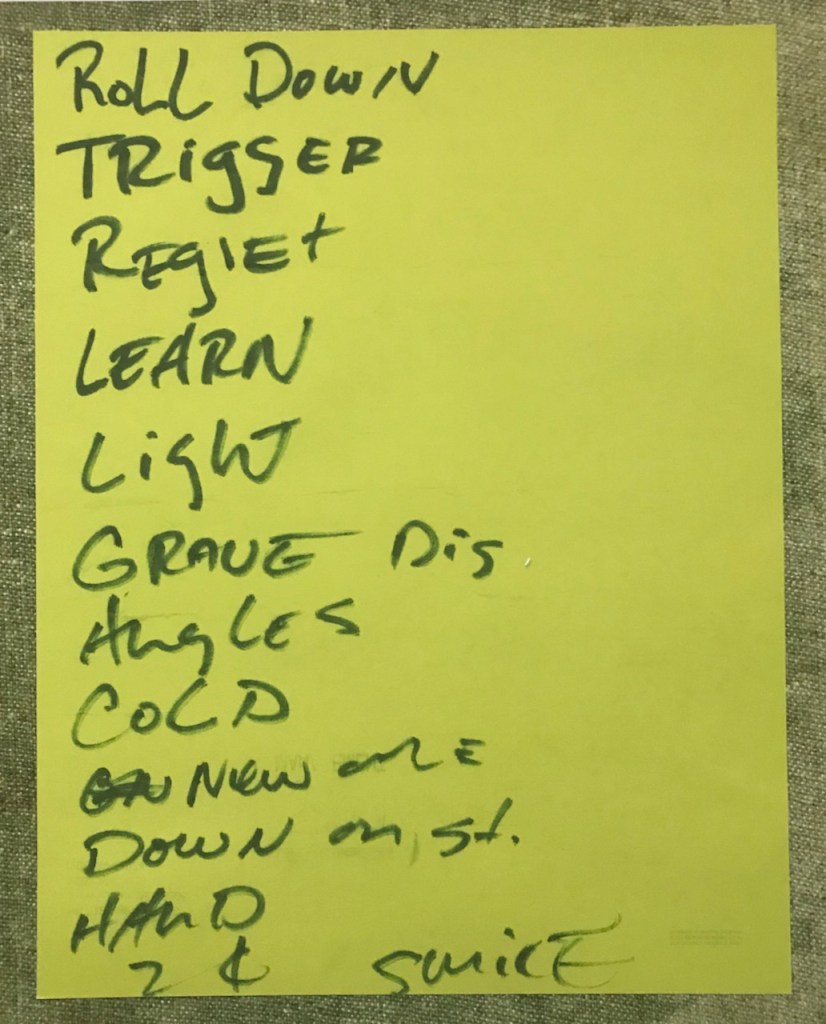 Roll Down
TRiggER
REgrEt
LEARN
Light
GRAVE Dig
AngLES
COLD
New onE
DOWN on st.
HAnD
2 ¢ SmilE